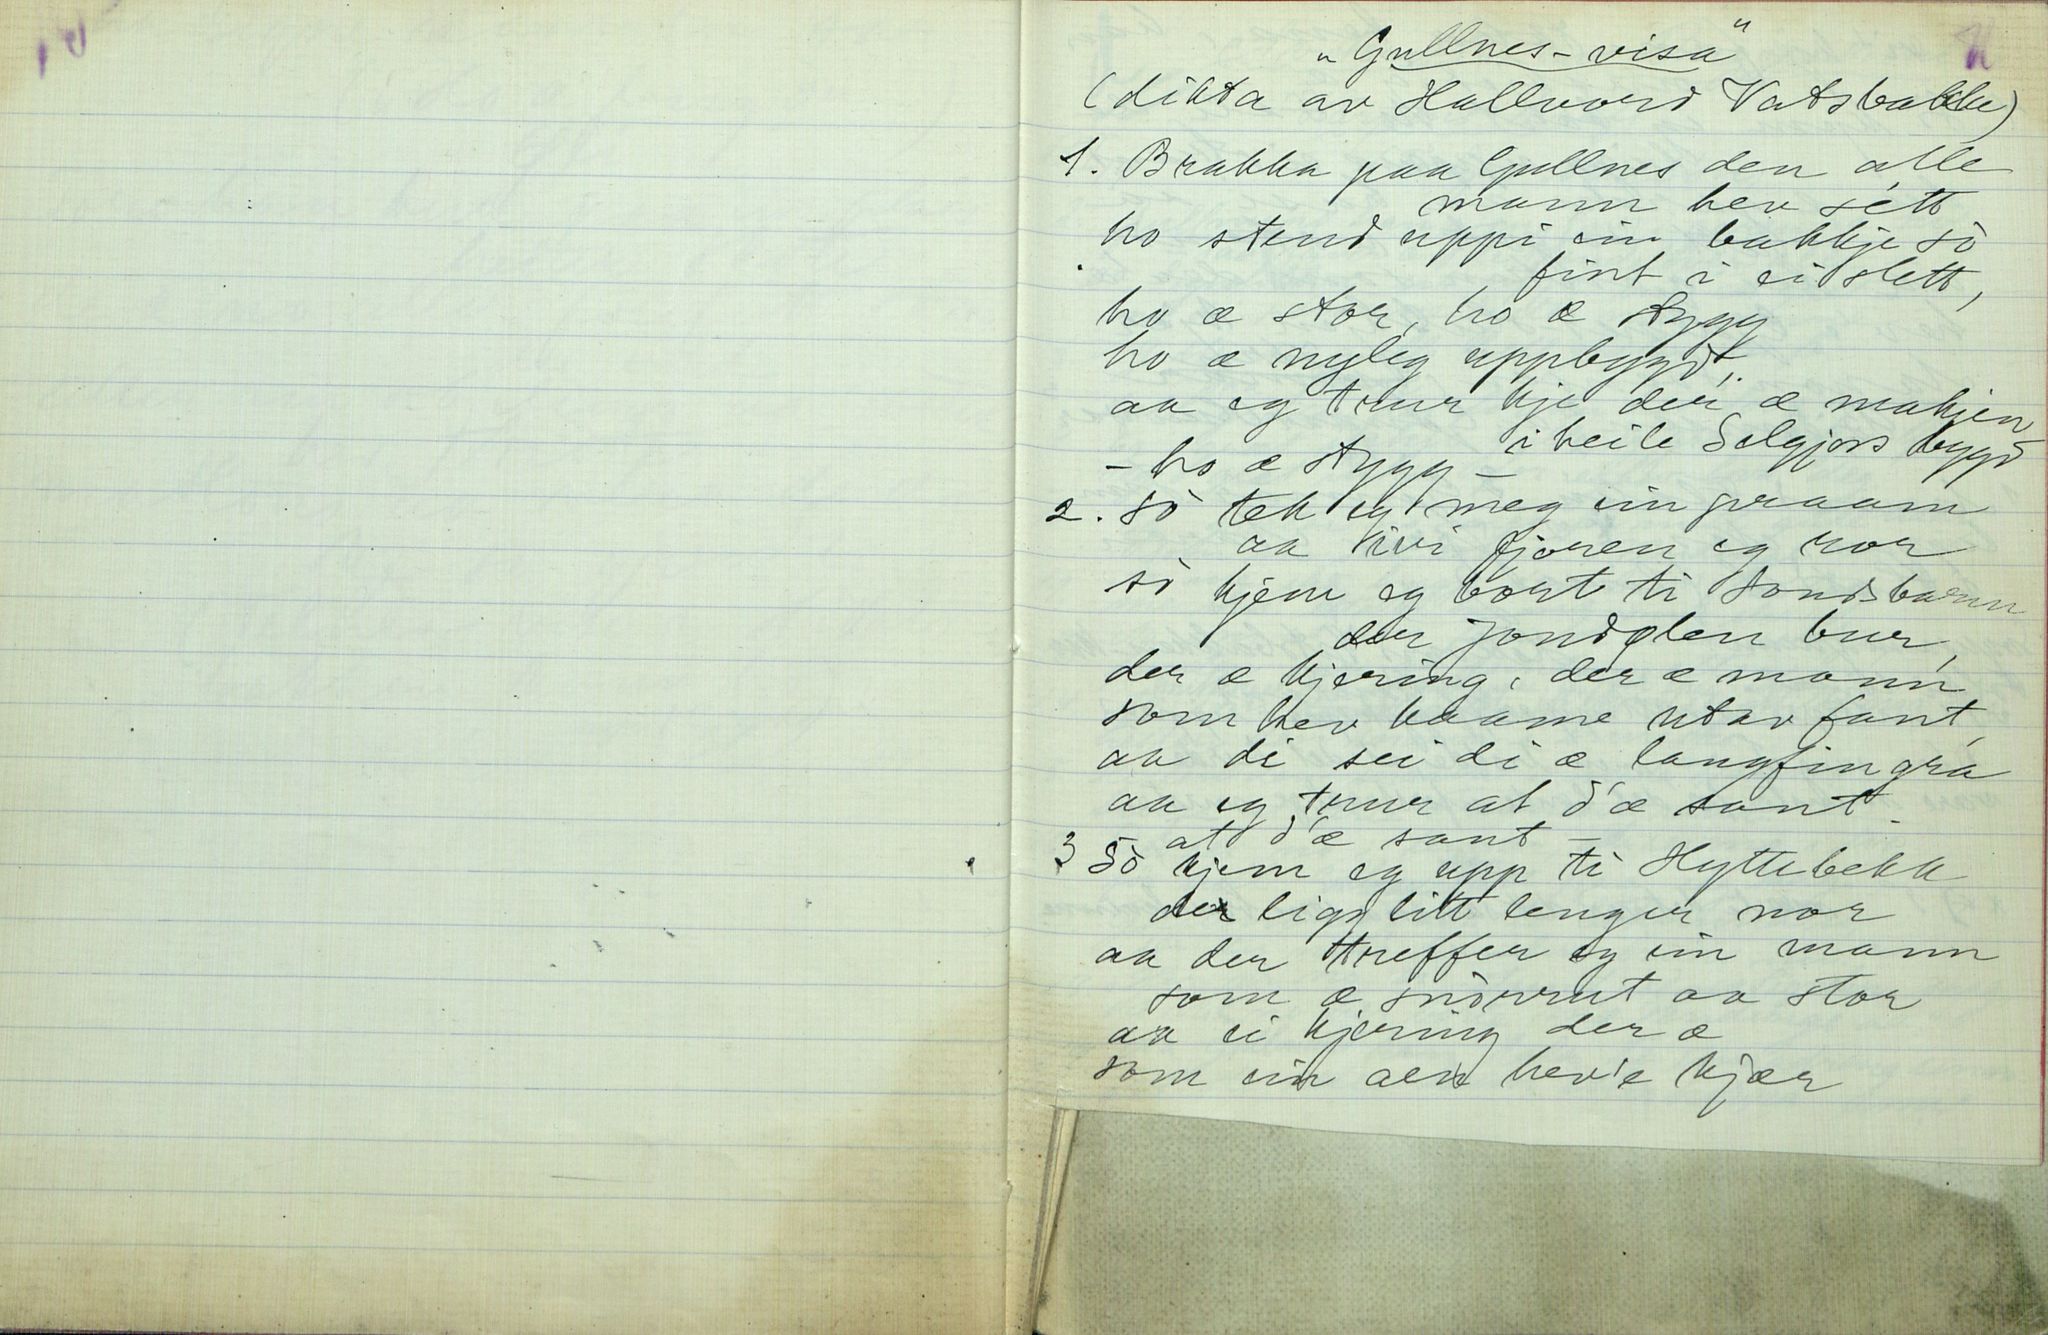 10
11
"Gullnes-visa"
(dikta av Hallvord Vatsbakke)
1. Brakka paa Gullnes den alle
mann hev sétt
ho stend uppi ein bakkje sò
fint i ei slett,
ho æ stor, ho æ stygg
ho æ nyleg uppbygdt,
aa eg trur kje der æ makjen
i heile Selgjors bygd
- ho æ stygg -
2. Sò tek eg meg ein praam
aa ivi fjoren eg ror
sò kjem eg bort ti
der bur,
der æ kjering, der æ mann,
som hev kaame utav fant,
aa di sei di æ langfingra
aa eg trur at d'æ sant.
at d'æ sant -
3 Sò kjem eg upp ti Hyttebekk
der ligg litt lenger nor
aa der treffer eg ein mann
som æ snòrrut aa stor
aa ei kjering der æ
som ein aen hev'e kjær